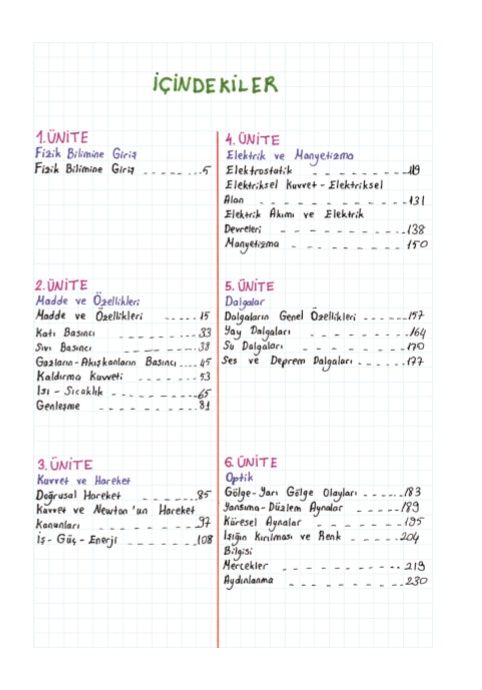 İÇİNDEKİLER
1.ÜNİTE
Fizik Bilimine Giriş
Fizik Bilimine Giriş _ _ _ _ _ _ _ 5
2.ÜNİTE
Madde ve Özellikleri
Madde ve Özellikleri _ _ _ _ _ 15
Katı Basıncı _ _ _ _ _ _ _ _ 33
Sıvı Basıncı _ _ _ _ _ _ _ _ 38
Gazların-Akışkanların Basıncı _ _ _ 45
Kaldırma Kuvveti _ _ _ _ _ _ 53
Isı - Sıcaklık _ _ _ _ _ _ _ _ 65
Genleşme _ _ _ _ _ _ _ _ 81
3. ÜNİTE
Kuvvet ve Hareket
Doğrusal Hareket _ _ _ _ _ _ 85
Kuvvet ve Newton'un Hareket
Kanunları _ _ _ _ _ _ _ _ 97
İş - Güç - Enerji _ _ _ _ _ _ 108
4. ÜNİTE
Elektrik ve Manyetizma
Elektrostatik _ _ _ _ _ _ _ _ 119
Elektriksel Kuvvet - Elektriksel
Alan _ _ _ _ _ _ _ _ _ _ 131
Elektrik Akımı ve Elektrik
Devreleri _ _ _ _ _ _ _ _ 138
Manyetizma _ _ _ _ _ _ _ _ 150
5. ÜNİTE
Dalgalar
Dalgaların Genel Özellikleri _ _ _ _ _ 157
Yay Dalgaları _ _ _ _ _ _ _ _ 164
Su Dalgaları _ _ _ _ _ _ _ _ 170
Ses ve Deprem Dalgaları _ _ _ _ _ 177
6. ÜNİTE
Optik
Gölge-Yarı Gölge Olayları _ _ _ _ _ 183
Yansıma-Düzlem Aynalar _ _ _ _ 189
Küresel Aynalar _ _ _ _ _ _ _ 195
Işığın Kırılması ve Renk _ _ _ _ 204
Bilgisi
Mercekler _ _ _ _ _ _ _ _ _ 219
Aydınlanma _ _ _ _ _ _ _ _ 230